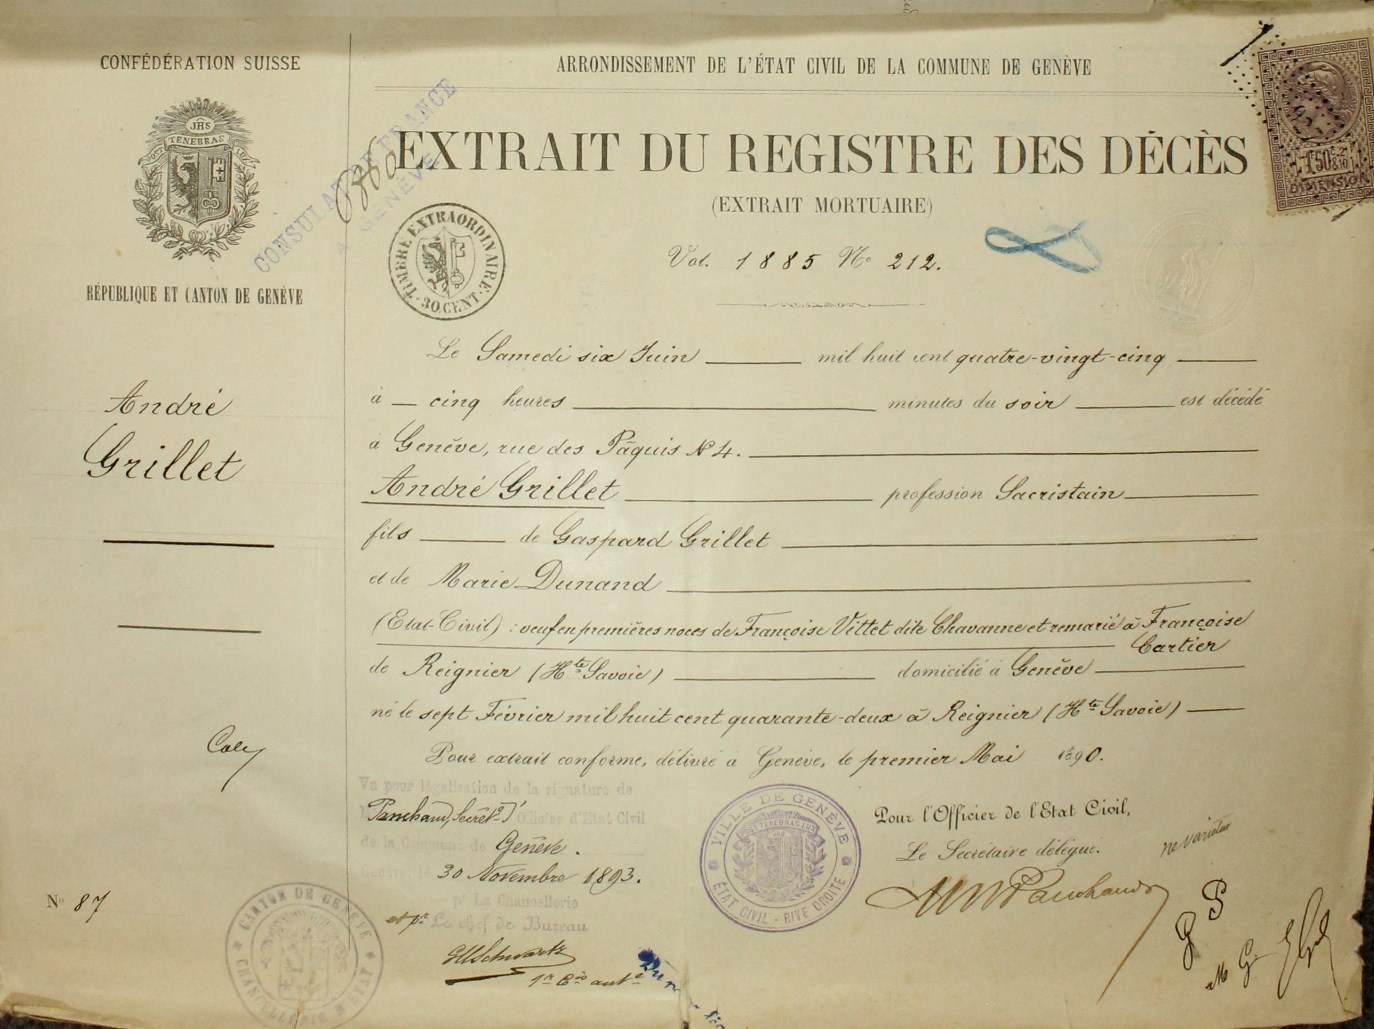 CONFÉDÉRATION SUISSE
JHS
TENEBRAS
RÉPUBLIQUE ET CANTON DE GENÈVE
André
Grillet
N° 87
CANTON DE GENÈVE
CHANCELLERIE D'ÉTAT
ARRONDISSEMENT DE L'ÉTAT CIVIL DE LA COMMUNE DE GENÈVE
CONSULAT DE FRANCE
A GENÈVE
EXTRAIT DU REGISTRE DES DÉCÈS
(EXTRAIT MORTUAIRE)
1F50c 2/10
DIMENSION
TIMBRE EXTRAORDINAIRE
30 CENT.
Vol. 1885 N° 212.
Le Samedi six Juin mil huit cent quatre-vingt-cinq
à cinq heures minutes du soir est décédé
à Genève, rue des Pâquis N° 4.
André Grillet profession Sacristain
fils de Gaspard Grillet
et de Marie Dunand
(Etat-Civil) : veuf en premières noces de Françoise Vittet dite Chavanne et remarié à Françoise
Cartier
de Reignier (Hte Savoie) domicilié à Genève
né le sept Février mil huit cent quarante-deux à Reignier (Hte Savoie)
Pour extrait conforme, délivré à Genève, le premier Mai 1890.
Vu pour légalisation de la signature de
Panchaud, Secrét. d' Officier d'Etat Civil
de la Commune de Genève.
30 Novembre 1893.
pr La Chancellerie
et pr Le chef de Bureau
Schwartz
VILLE DE GENÈVE
ÉTAT CIVIL - RIVE DROITE
Pour l'Officier de l'Etat Civil,
Le Secrétaire délégué.
ne varietur
Panchaud